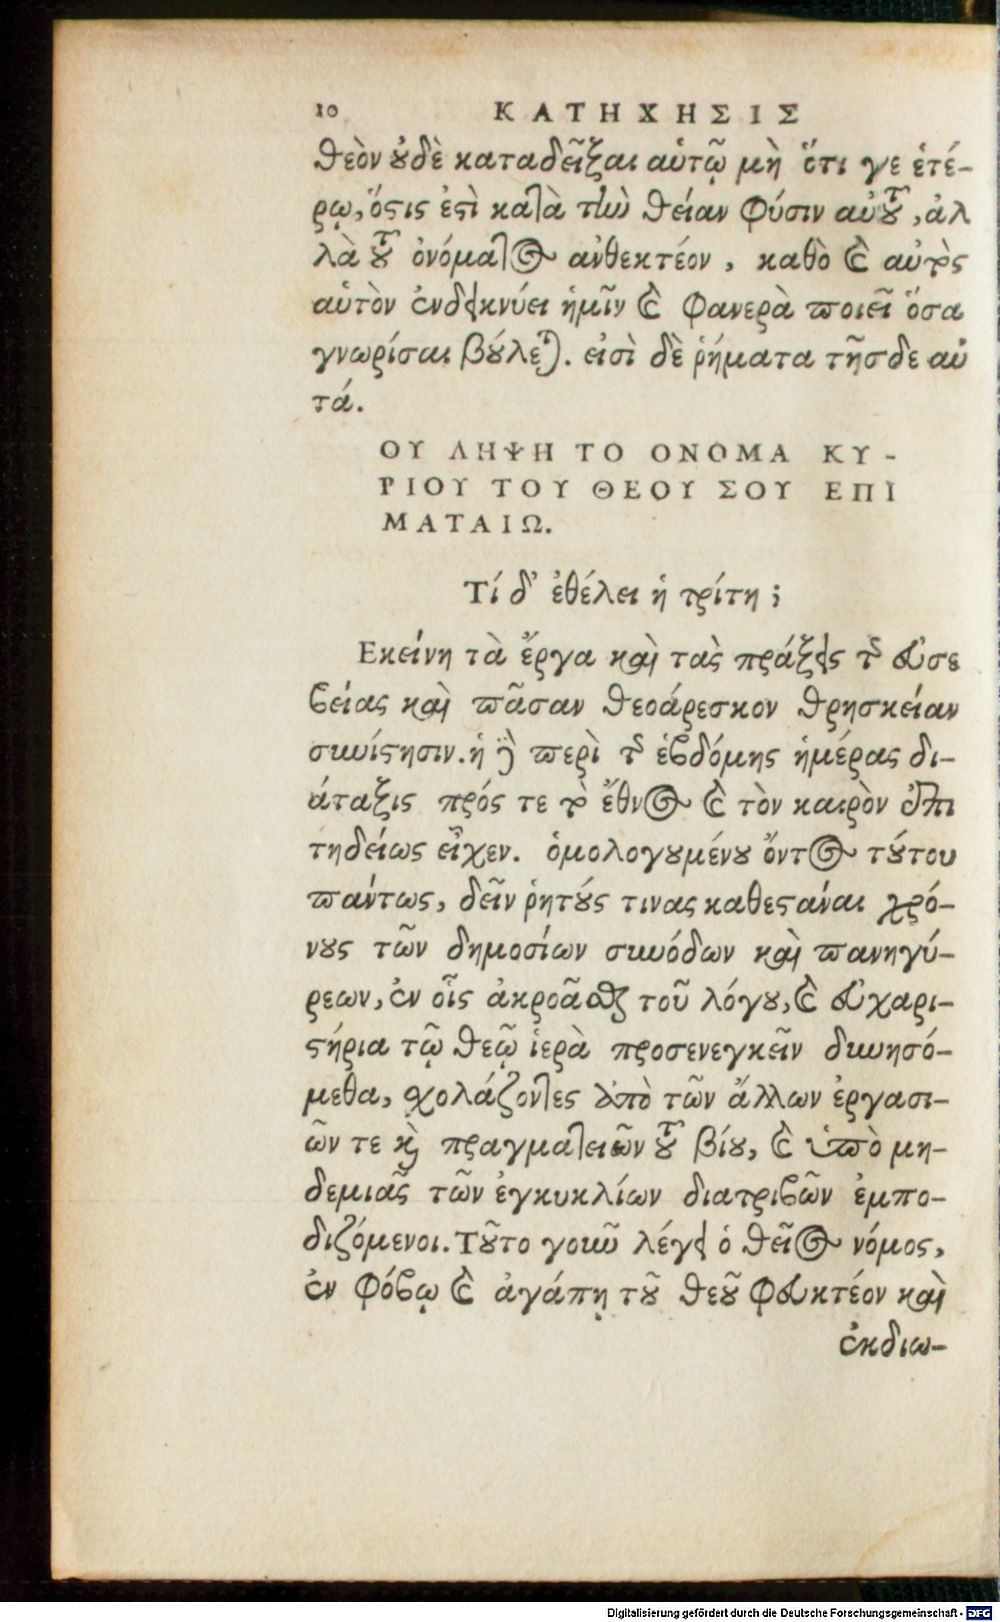 10 ΚΑΤΗΧΗΣΙΣ
θεὸν ȣ̓δὲ καταδεῖξαι αὑτῷ μὴ ὅτι γε ἑτέ-
ρῳ, ὅςις ἐςὶ κατὰ τὴν θείαν φύσιν αὐτȣ͂, ἀλ
λὰ τȣ͂ ὀνόματος ἀνθεκτέον, καθὸ ϗ αὐτὸς
αὑτὸν ἐνδείκνύει ἡμῖν ϗ φανερὰ ποιεῖ ὅσα
γνωρίσαι βȣ́λεται. εἰσὶ δὲ ῥήματα τῆσδε αὐ
τά.
ΟΥ ΛΗΨΗ ΤΟ ΟΝΟΜΑ ΚΥ-
ΡΙΟΥ ΤΟΥ ΘΕΟΥ ΣΟΥ ΕΠΙ
ΜΑΤΑΙΩ.
Τί δ’ ἐθέλει ἡ τρίτη;
Εκείνη τὰ ἔργα καὶ τὰς πράξεις τῆς εὐσε
βείας καὶ πᾶσαν θεοάρεσκον θρησκείαν
συνίςησιν. ἡ γὰρ περὶ τῆς ἑβδόμης ἡμέρας δι-
άταξις πρός τε τὸ ἔθνος ϗ τὸν καιρὸν ἐπι
τηδείως εἶχεν. ὁμολογȣμένȣ ὄντος τȣ́του
πάντως, δεῖν ῥητȣ́ς τινας καθεςάναι χρό-
νȣς τῶν δημοσίων συνόδων καὶ πανηγύ-
ρεων, ἐν οἷς ἀκροᾶσθαι τοῦ λόγȣ, ϗ εὐχαρι-
ςήρια τῷ θεῷ ἱερὰ προσενεγκεῖν δυνησό-
μεθα, σχολάζοντες ἀπὸ τῶν ἄλλων ἐργασι-
ῶν τε ϗ πραγματειῶν τȣ͂ βίȣ, ϗ ὑπὸ μη-
δεμιᾶς τῶν ἐγκυκλίων διατριβῶν ἐμπο-
διζόμενοι. Τȣ͂το γοῦν λέγει ὁ θεῖος νόμος,
ἐν φόβῳ ϗ ἀγάπῃ τȣ͂ θεȣ͂ φευκτέον καὶ
ἐκδιω-
Digitalisierung gefördert durch die Deutsche Forschungsgemeinschaft - DFG